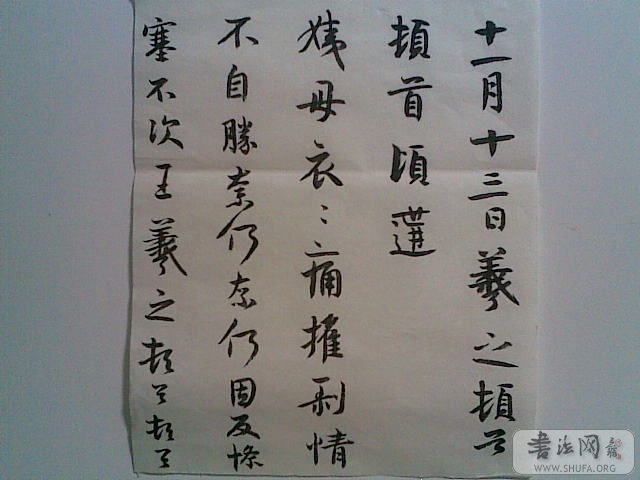 十一月十三日羲之頓首
頓首頃遘
姨母哀〻痛摧剝情
不自勝奈何奈何因反慘
塞不次王羲之頓首頓首
書法网
WWW.SHUFA.ORG